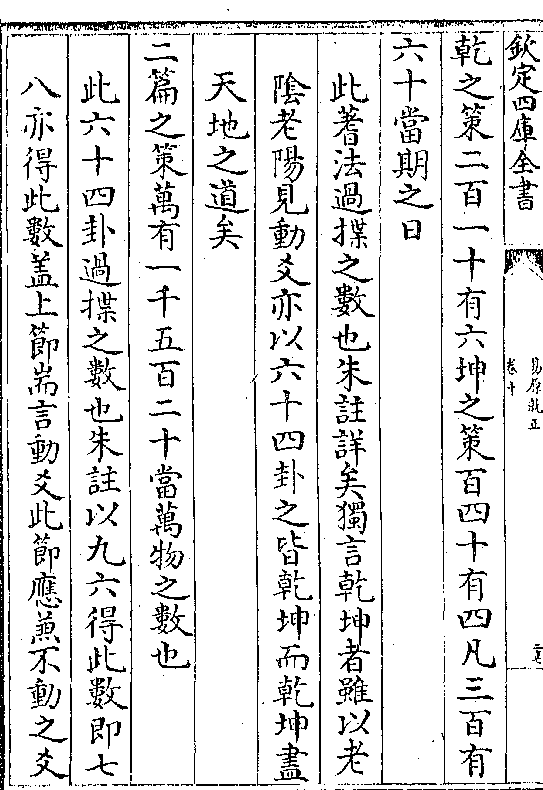 欽定四庫全書
易原就正
卷十
乾之策二百一十有六坤之策百四十有四凡三百有
六十當期之日
此蓍法過揲之數也朱註詳矣獨言乾坤者雖以老
陰老陽見動爻亦以六十四卦之皆乾坤而乾坤盡
天地之道矣
二篇之策萬有一千五百二十當萬物之數也
此六十四卦過揲之數也朱註以九六得此數即七
八亦得此數盖上節耑言動爻此節應兼不動之爻